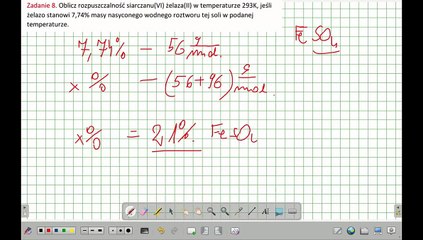 Zadanie 8. Oblicz rozpuszczalność siarczanu(VI) żelaza(II) w temperaturze 293K, jeśli
żelazo stanowi 7,74% masy nasyconego wodnego roztworu tej soli w podanej
temperaturze.
FeSO4
7,74% — 56 g/mol.
x % — (56+96) g/mol.
x % = 21%. FeSO4